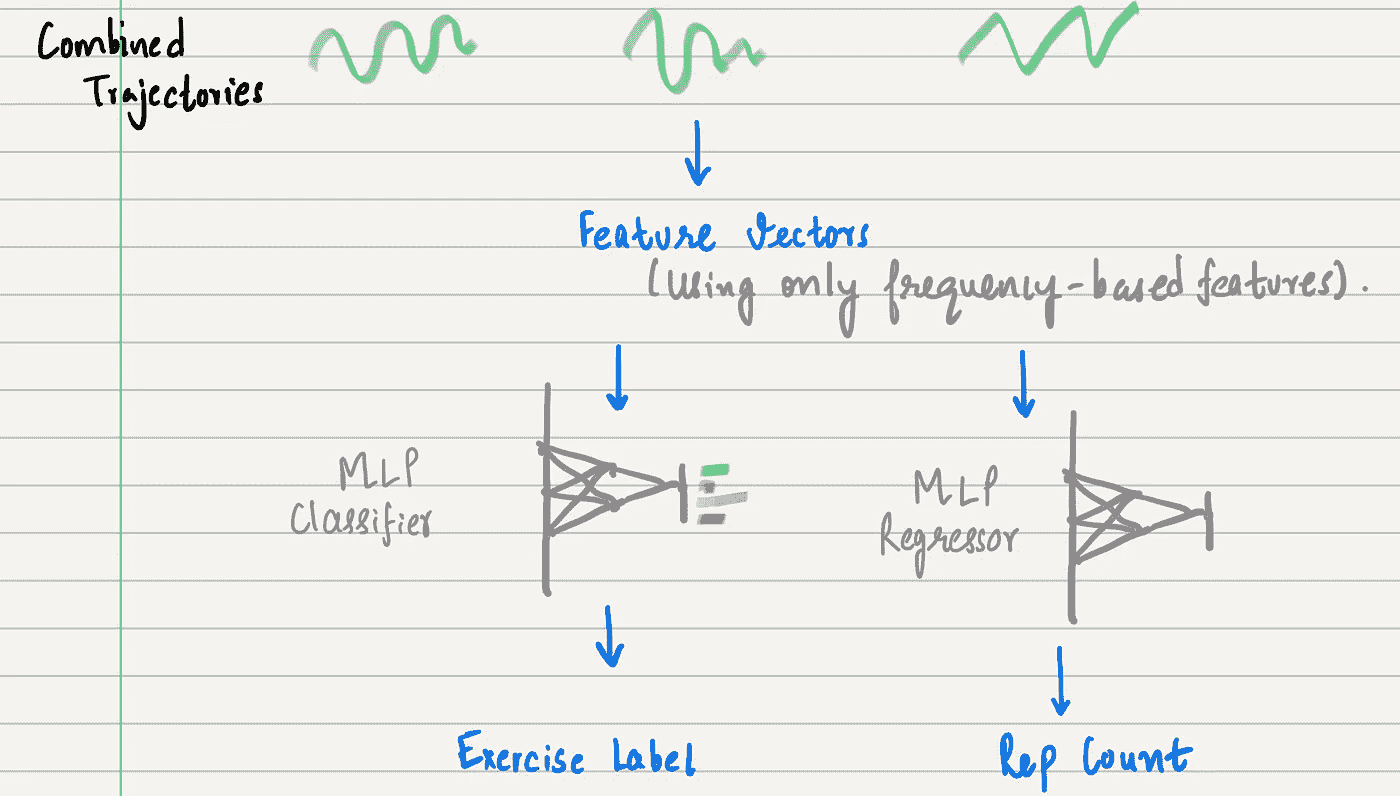 Combined
Trajectories
Feature Vectors
(Using only frequency-based features).
MLP
Classifier
MLP
Regressor
Exercise Label
Rep Count